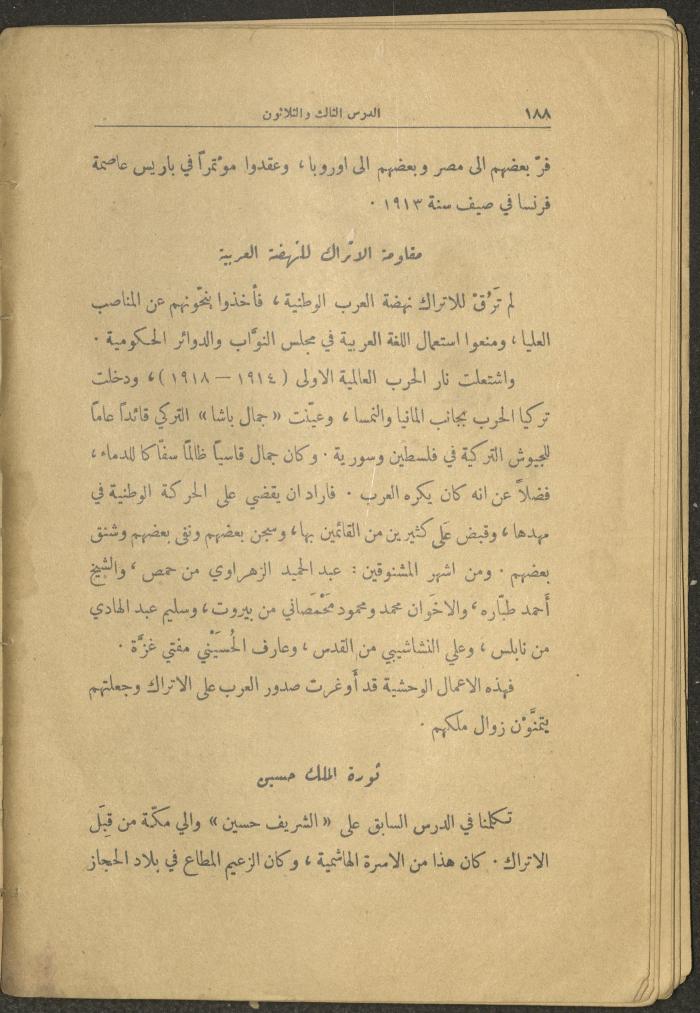 ١٨٨ الدرس الثالث والثلاثون
فرّ بعضهم الى مصر وبعضهم الى اوروبا ، وعقدوا مؤتمراً في باريس عاصمة
فرنسا في صيف سنة ١٩١٣ .
مقاومة الاتراك للنهضة العربية
لم تَرُقْ للاتراك نهضة العرب الوطنية ، فأخذوا ينحّونهم عن المناصب
العليا ، ومنعوا استعمال اللغة العربية في مجلس النوَّاب والدوائر الحكومية .
واشتعلت نار الحرب العالمية الاولى ( ١٩١٤ — ١٩١٨ ) ، ودخلت
تركيا الحرب بجانب المانيا والنمسا ، وعيّنت « جمال باشا » التركي قائداً عاماً
للجيوش التركية في فلسطين وسورية . وكان جمال قاسياً ظالماً سفّاكا للدماء ،
فضلاً عن انه كان يكره العرب . فاراد ان يقضي على الحركة الوطنية في
مهدها ، وقبض عَلَى كثيرين من القائمين بها ، وسجن بعضهم ونفى بعضهم وشنق
بعضهم . ومن اشهر المشنوقين : عبد الحميد الزهراوي من حمص ، والشيخ
أحمد طبّاره ، والاخَوان محمد ومحمود مَحْمَصاني من بيروت ، وسليم عبد الهادي
من نابلس ، وعلي النشاشيبي من القدس ، وعارف الحُسَيْني مفتي غزَّة .
فهذه الاعمال الوحشية قد أَوغرت صدور العرب على الاتراك وجعلتهم
يتمنَّوْن زوال ملكهم .
ثورة الملك حسين
تكلمنا في الدرس السابق على « الشريف حسين » والي مكّة من قِبَل
الاتراك . كان هذا من الاسرة الهاشمية ، وكان الزعيم المطاع في بلاد الحجاز